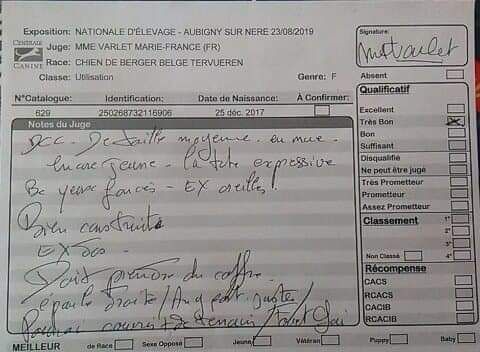 Exposition: NATIONALE D'ÉLEVAGE - AUBIGNY SUR NERE 23/08/2019
Juge: MME VARLET MARIE-FRANCE (FR)
Race: CHIEN DE BERGER BELGE TERVUEREN
Classe: Utilisation
Genre: F
CENTRALE
CANINE
N°Catalogue:
Identification:
Date de Naissance:
À Confirmer:
629
250268732116906
25 déc. 2017
Notes du Juge
DCC - De taille moyenne - en mue
Encore jeune - la tête expressive
Be yeux foncés - EX oreilles!
Bien construite
EX dos -
Doit prendre du coffre
épaule droite / Ang post. justes
MEILLEUR
de Race
Sexe Opposé
Jeune
Vétéran
Puppy
Baby
Signature:
MVarlet
Absent
Qualificatif
Excellent
Très Bon
Bon
Suffisant
Disqualifié
Ne peut être jugé
Très Prometteur
Prometteur
Assez Prometteur
Classement
1°
2°
3°
4°
Non Classé
Récompense
CACS
RCACS
CACIB
RCACIB